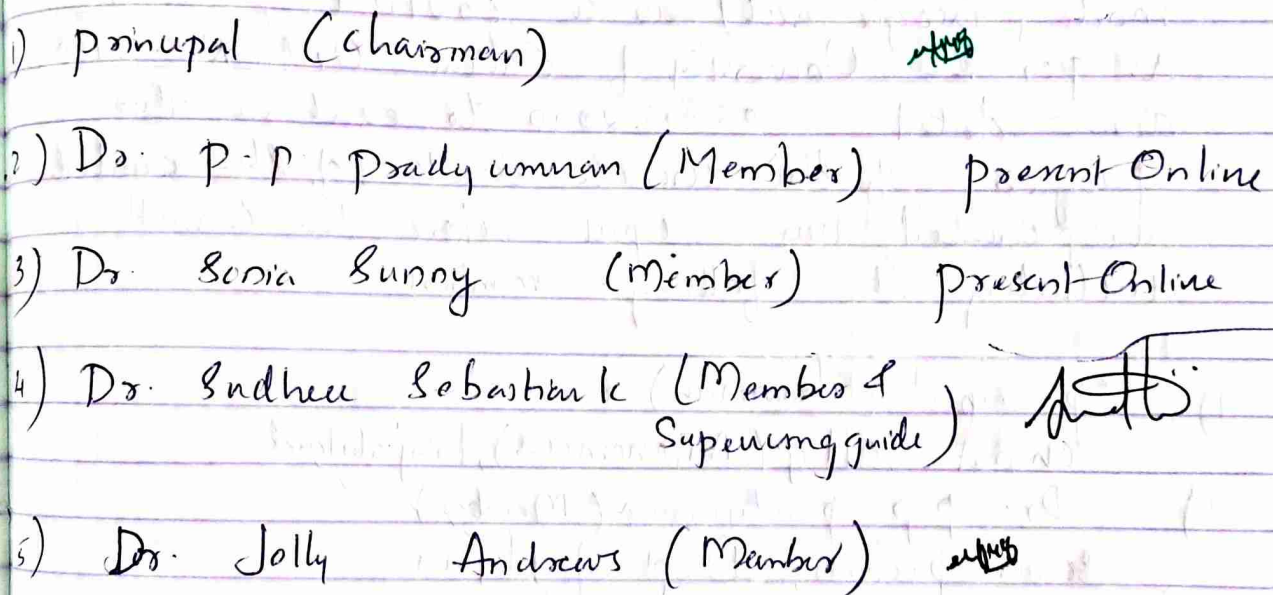 1) Principal (Chairman)
2) Dr. P.P Pradyumnan (Member) present Online
3) Dr. Sonia Sunny (Member) present Online
4) Dr. Sudheer Sebastian K (Member &
Supervising guide)
5) Dr. Jolly Andrews (Member)